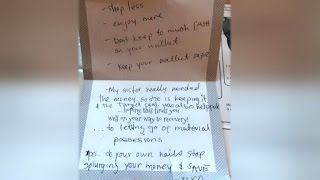 - stop less
- enjoy more
- Dont keep to much cash
on your wallet
- keep your wallet safe
- My sister really needed
the money so she is keeping it
& the Target card was also helpful
... hoping this finds you
well on your way to recovery!
... to letting go of material
possessions
ps. do your own nails stop
splurging your money & SAVE